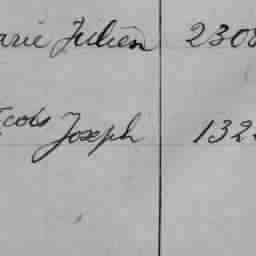 arie Julien 230
çois Joseph 132